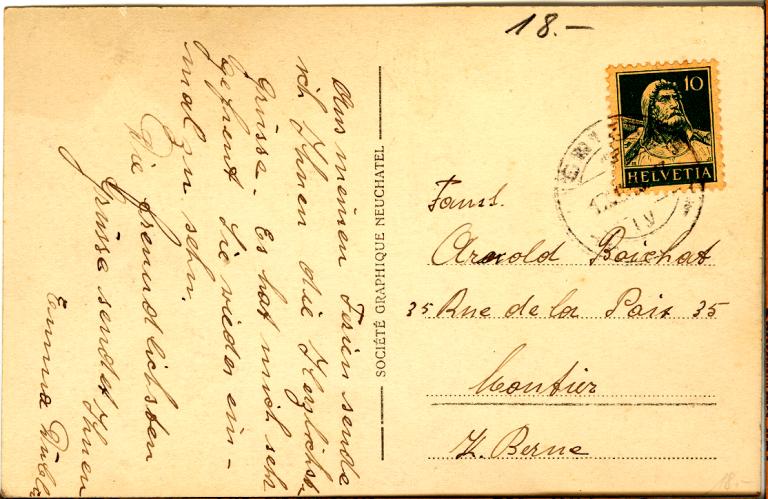 18.-
Aus meinen Ferien sende
ich Ihnen die Herzlichst
Grüsse. Es hat mich seh
gefreut Sie wieder ein-
mal zu sehn.
Die freundlichsten
Grüsse sendet Ihnen
Emma
SOCIÉTÉ GRAPHIQUE NEUCHATEL
10
HELVETIA
Fam.
Arnold Boichat
35 Rue de la Paix 35
Moutier
K. Berne
18.-